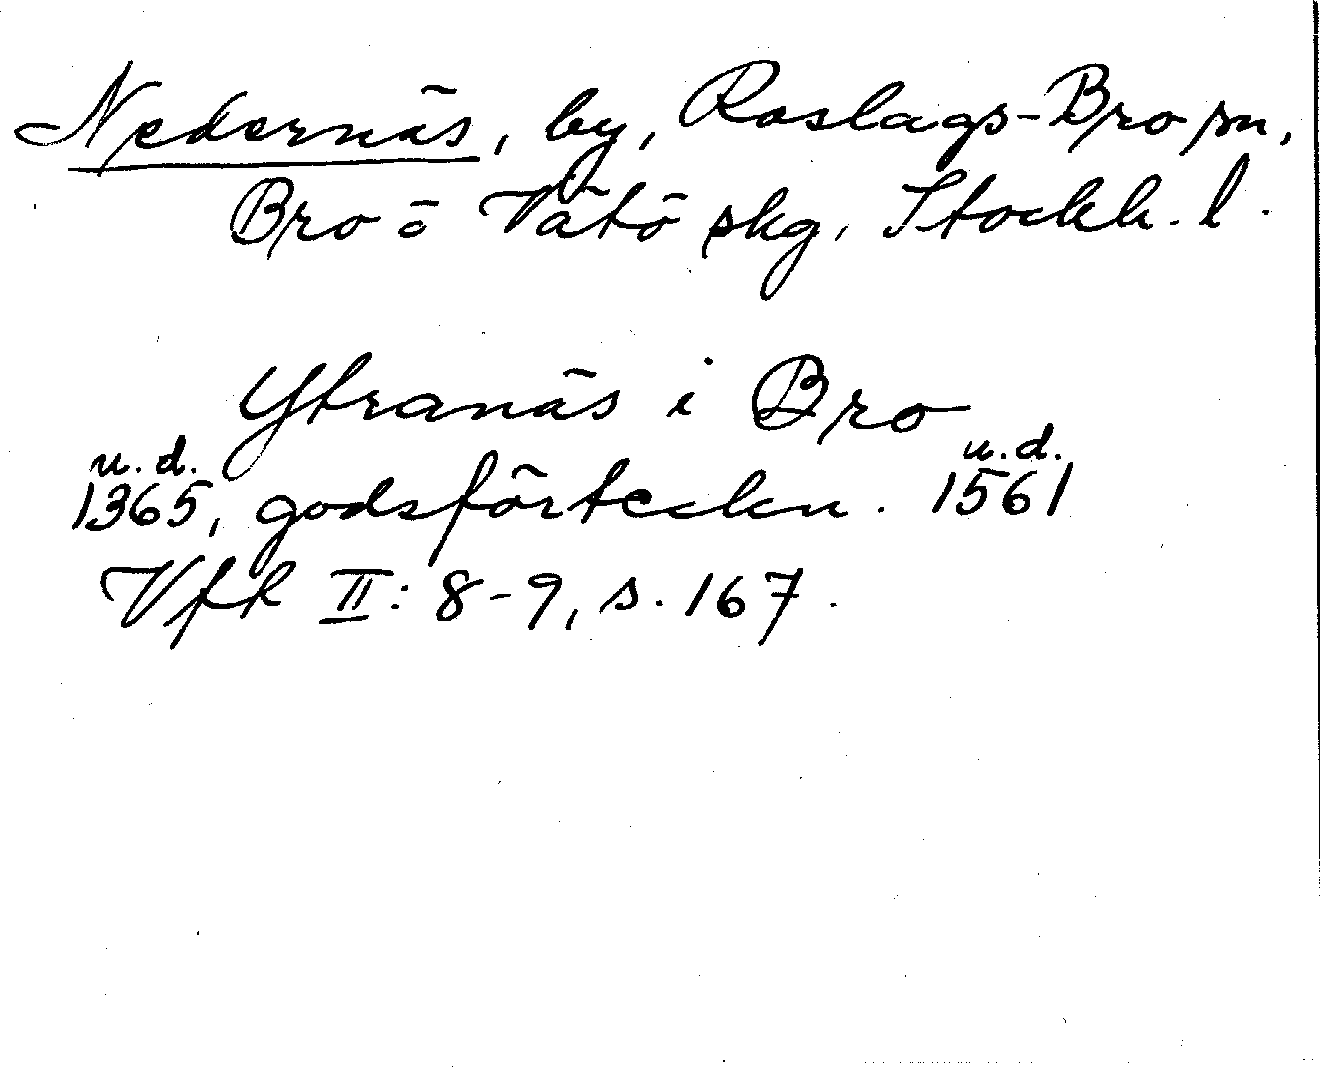 Nedernäs, by, Roslags-Bro sn,
Bro ö Vätö skg, Stockh. l.
Ytranäs i Bro
u. d. u. d.
1365, godsförteckn. 1561
Vfk II: 8-9, s. 167.